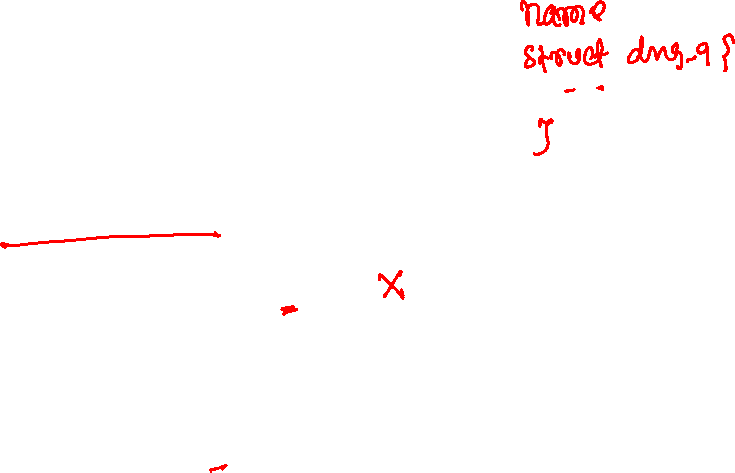 name
struct dns_q {
- -
}
X